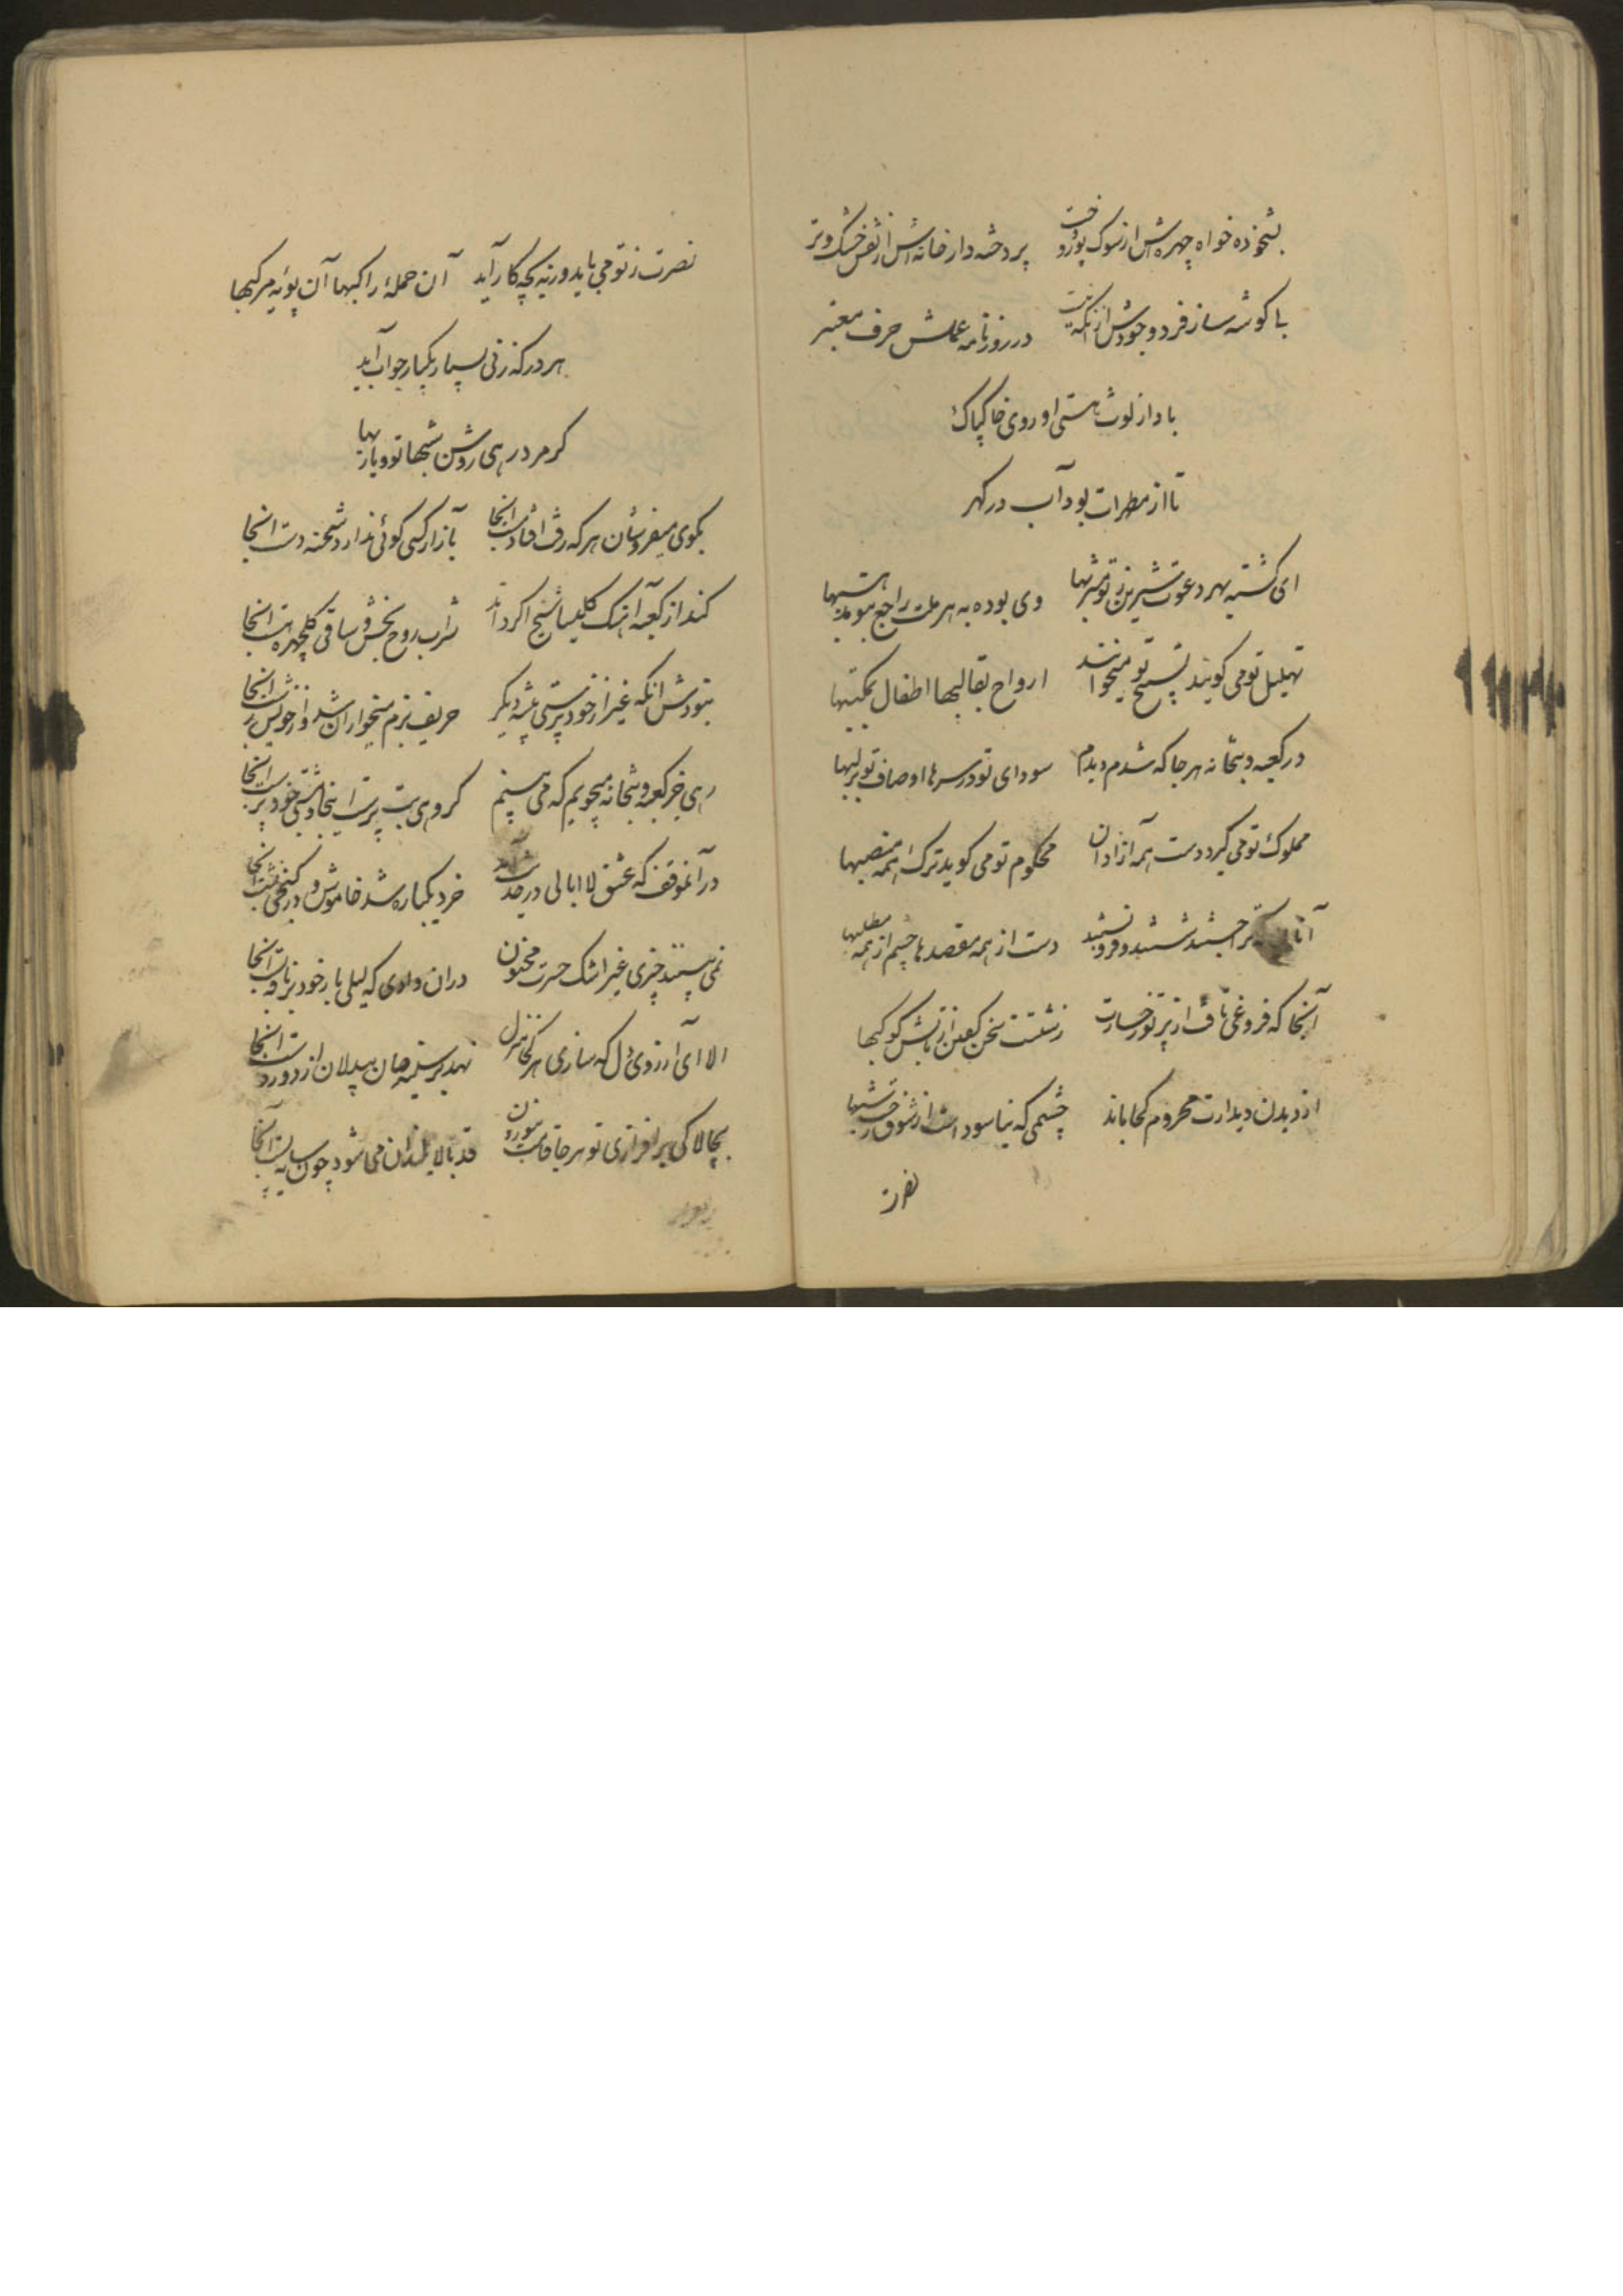 بشخوده خواه چهره‌اش از نوک پوز و پر دخشه دار خانه‌اش از نفس خشک وتر
با کوشه ساز فرد وجودش از آنکه نیست در روزنامه عملش حرف معتبر
بادا ز لوث هستی او روی خاک پاک
تا از مطرات بود آب در کهر
ای کشته بهر دعوت شیرین ز تو مشربها وی بوده به هر ملت راجع بتو مذهبها
تهلیل تو می کویند تسبیح تو میخوانند ارواح بقالبها اطفال بمکتبها
در کعبه و بتخانه هر جا که شدم دیدم سودای تو در سرها اوصاف تو بر لبها
مملوک تو می کیرد دست همه آزادان محکوم تو می کوید ترک همه منصبها
آنان که ترا جستند شستند و فرو بستند دست از همه مقصدها چشم از همه مطلبها
آنجا که فروغی تافت از پرتو رخسارت زشتست سخن کفتن از تابش کوکبها
از دیدن دیدارت محروم کجا ماند چشمی که نیاسوداست از شوق رخت شبها
نصرت
نصرت ز تو می باید ورنه بچه کار آید آن حملهٔ راکبها آن پویهٔ مرکبها
هر در که زنی بسیار یکبار جواب آید
کر مرد رهی روشن شبها تو و یاربها
بکوی میفروشان هر که رفت افتاد مست آنجا بازار کسی کوئی ندارد شحنه دست آنجا
کند از کعبه آهنک کلیسا شیخ اکر داند شراب روح بخش و ساقی کلچهره هست آنجا
نبودش آنکه غیر از خود پرستی پیشه دیکر حریف بزم میخواران شد و از خویش رست آنجا
رهی جز کعبه و بتخانه میجویم که می بینم کروهی بت پرست اینجا و مشتی خود پرست آنجا
در آنموقف که عشق لا ابالی در حدیث آمد خرد یکباره شد خاموش و در کنجی نشست آنجا
نمی بیند چیزی غیر اشک حسرت مجنون در آن وادی که لیلی بار خود بر ناقه بست آنجا
الا ای آرزوی دل که سازی هر کجا منزل نهد بر سینه جان بیدلان از دور دست آنجا
بچالاکی بر افرازی تو هر جا قامت موزون قد بالا بلندان می شود چون سایه پست آنجا